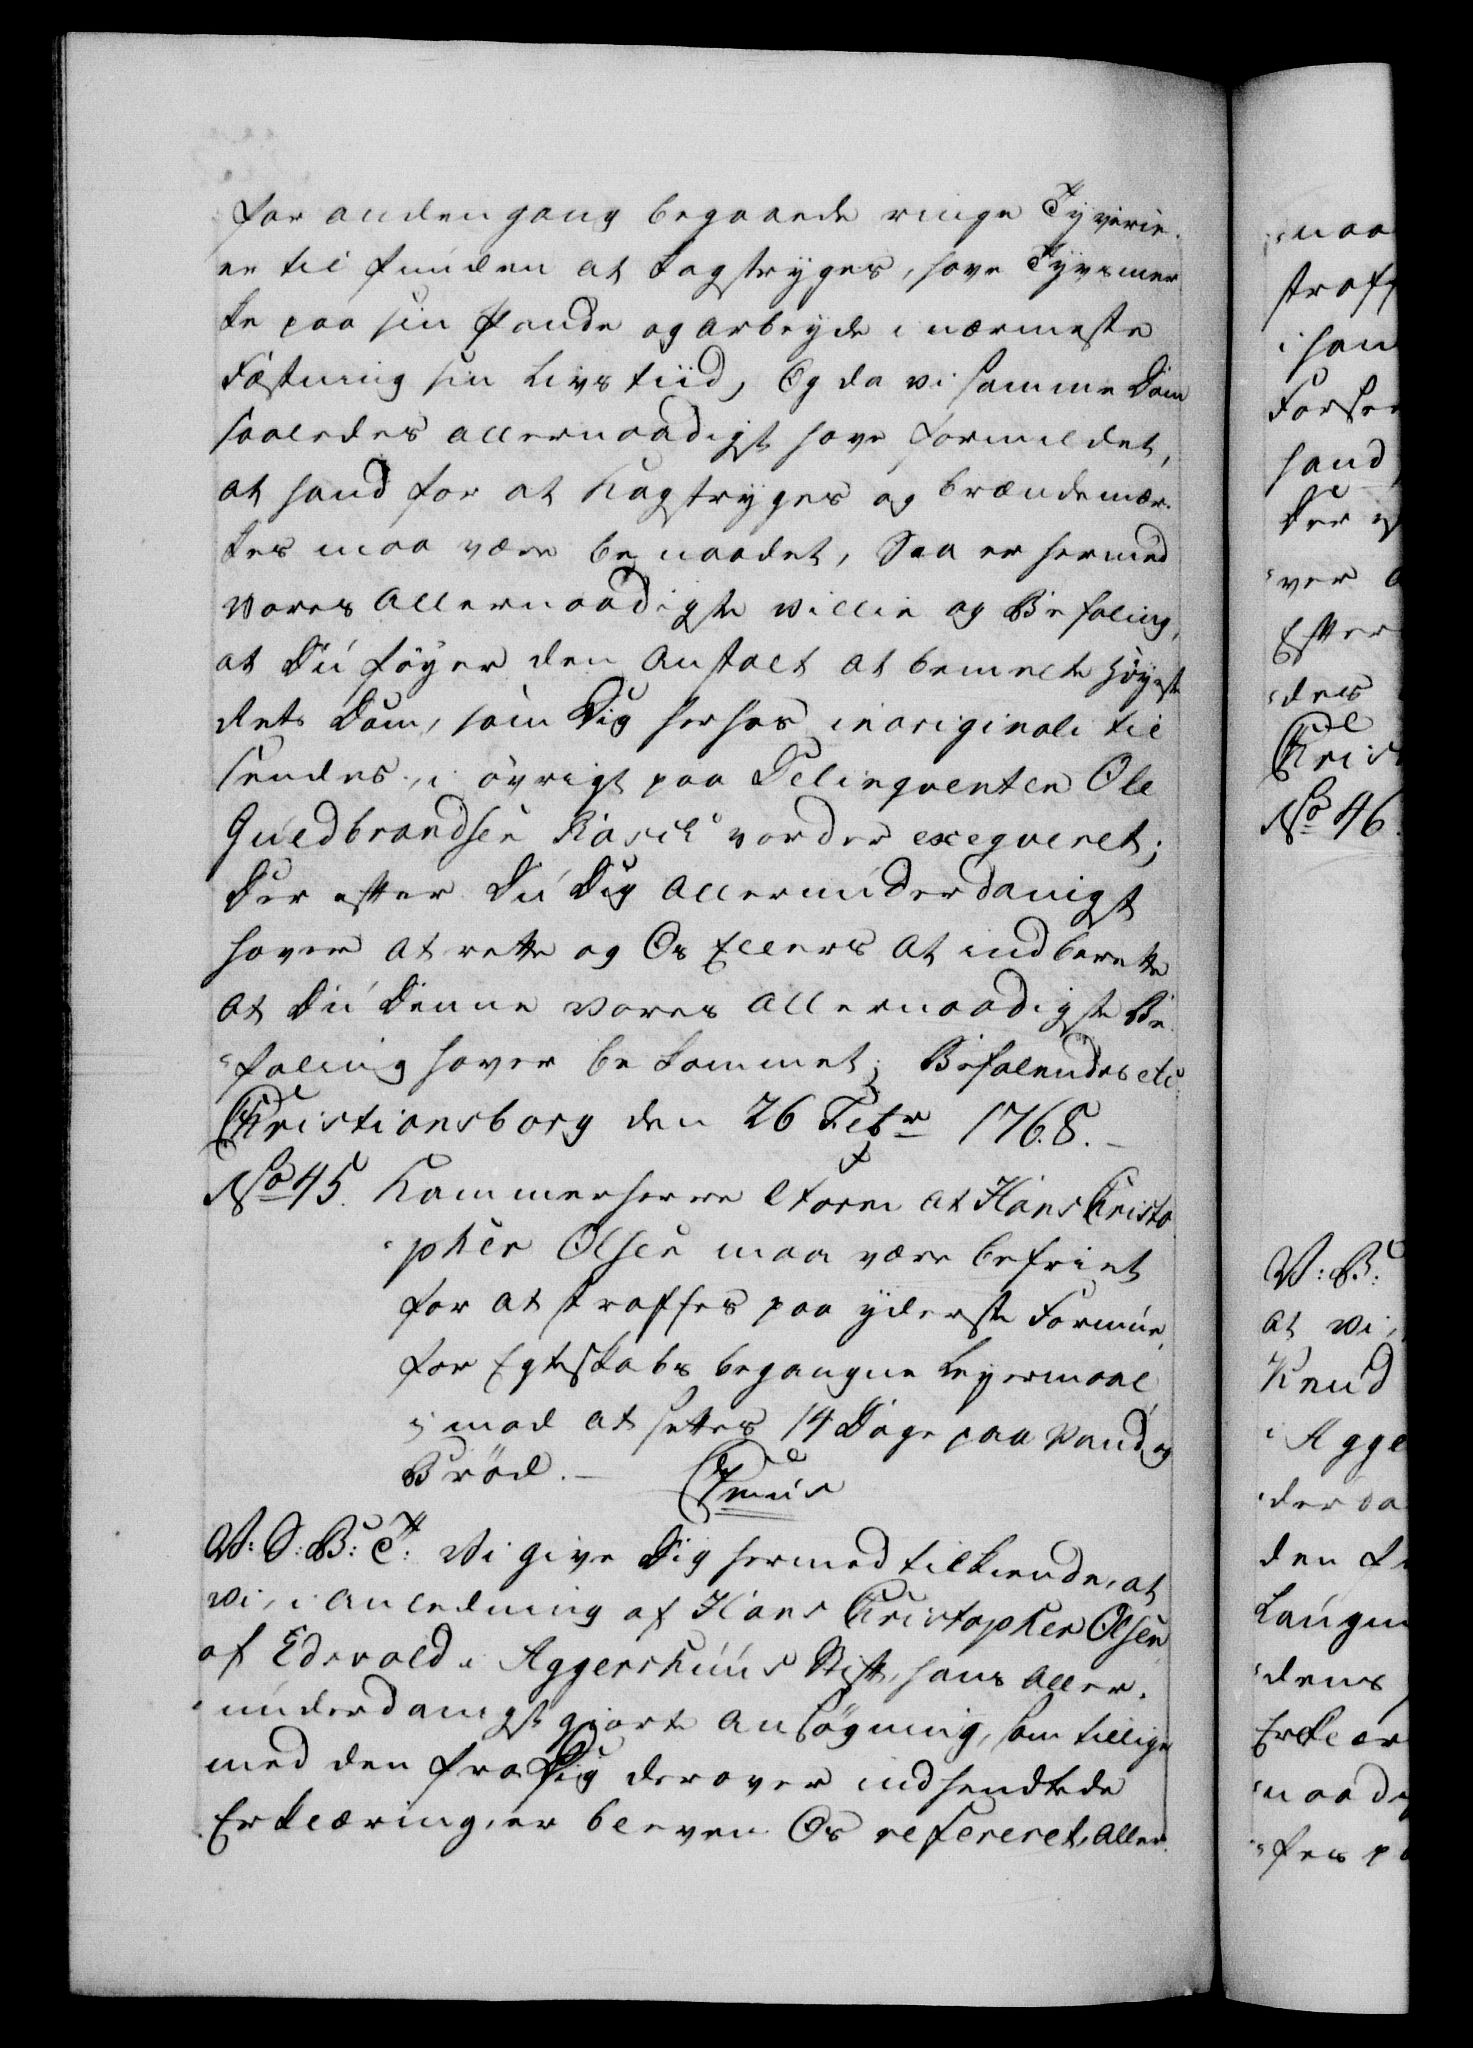 for anden gang begaaede ringe Tyverie
er til funden at kagstryges, have Tyvsmer
ke paa sin Pande og arbeyde i nærmeste
Fæstning sin Livs tiid, Og da vi samme Dom
saaledes allernaadigst have formildet,
at hand for at Kagstryges og brændemær-
kes maa være benaadet, Saa er hermed
Vores Allernaadigste Villie og Befaling,
at Du føyer den Anstalt at bemelte Høyeste
Rets Dom, som Dig herhos in originali til
sendes, i øvrigt paa Delinqventen Ole
Guldbrandsen vorder exeqveret;
Der efter Du Dig allerunderdanigst
haver at rette og Os Ellers at indberette
at Du Denne Vores allernaadigste Be
"faling haver bekommet; Befalendes etc
Christiansborg den 26 Febr 1768. –
No 45. Kammerherre Storm at Hans Christo
"pher Olsen maa være befriet
for at straffes paa yderste Formue,
for Egteskabs begangne Leyermaal
i mod at settes 14 Dage paa Vand og
Brød. –
V: S: B: T: Vi give Dig hermed tilkiende, at
vi, i Anledning af Hans Christopher Olsen
af Edsvold i Aggershuus Stift, hans Aller-
"underdanigst giorte Ansøgning, som tillige
med den fra Dig derover indsendtede
Erklæring, er bleven Os refereret, Aller
"naa
straff
i han
Forsee
hand
Der e
"ver a
Efter
"des
Chris
No 46.
V: B:
at vi,
Knud
i Agge
"der da
den f
Laugm
"dens
Erklær
"naadi
"fes p